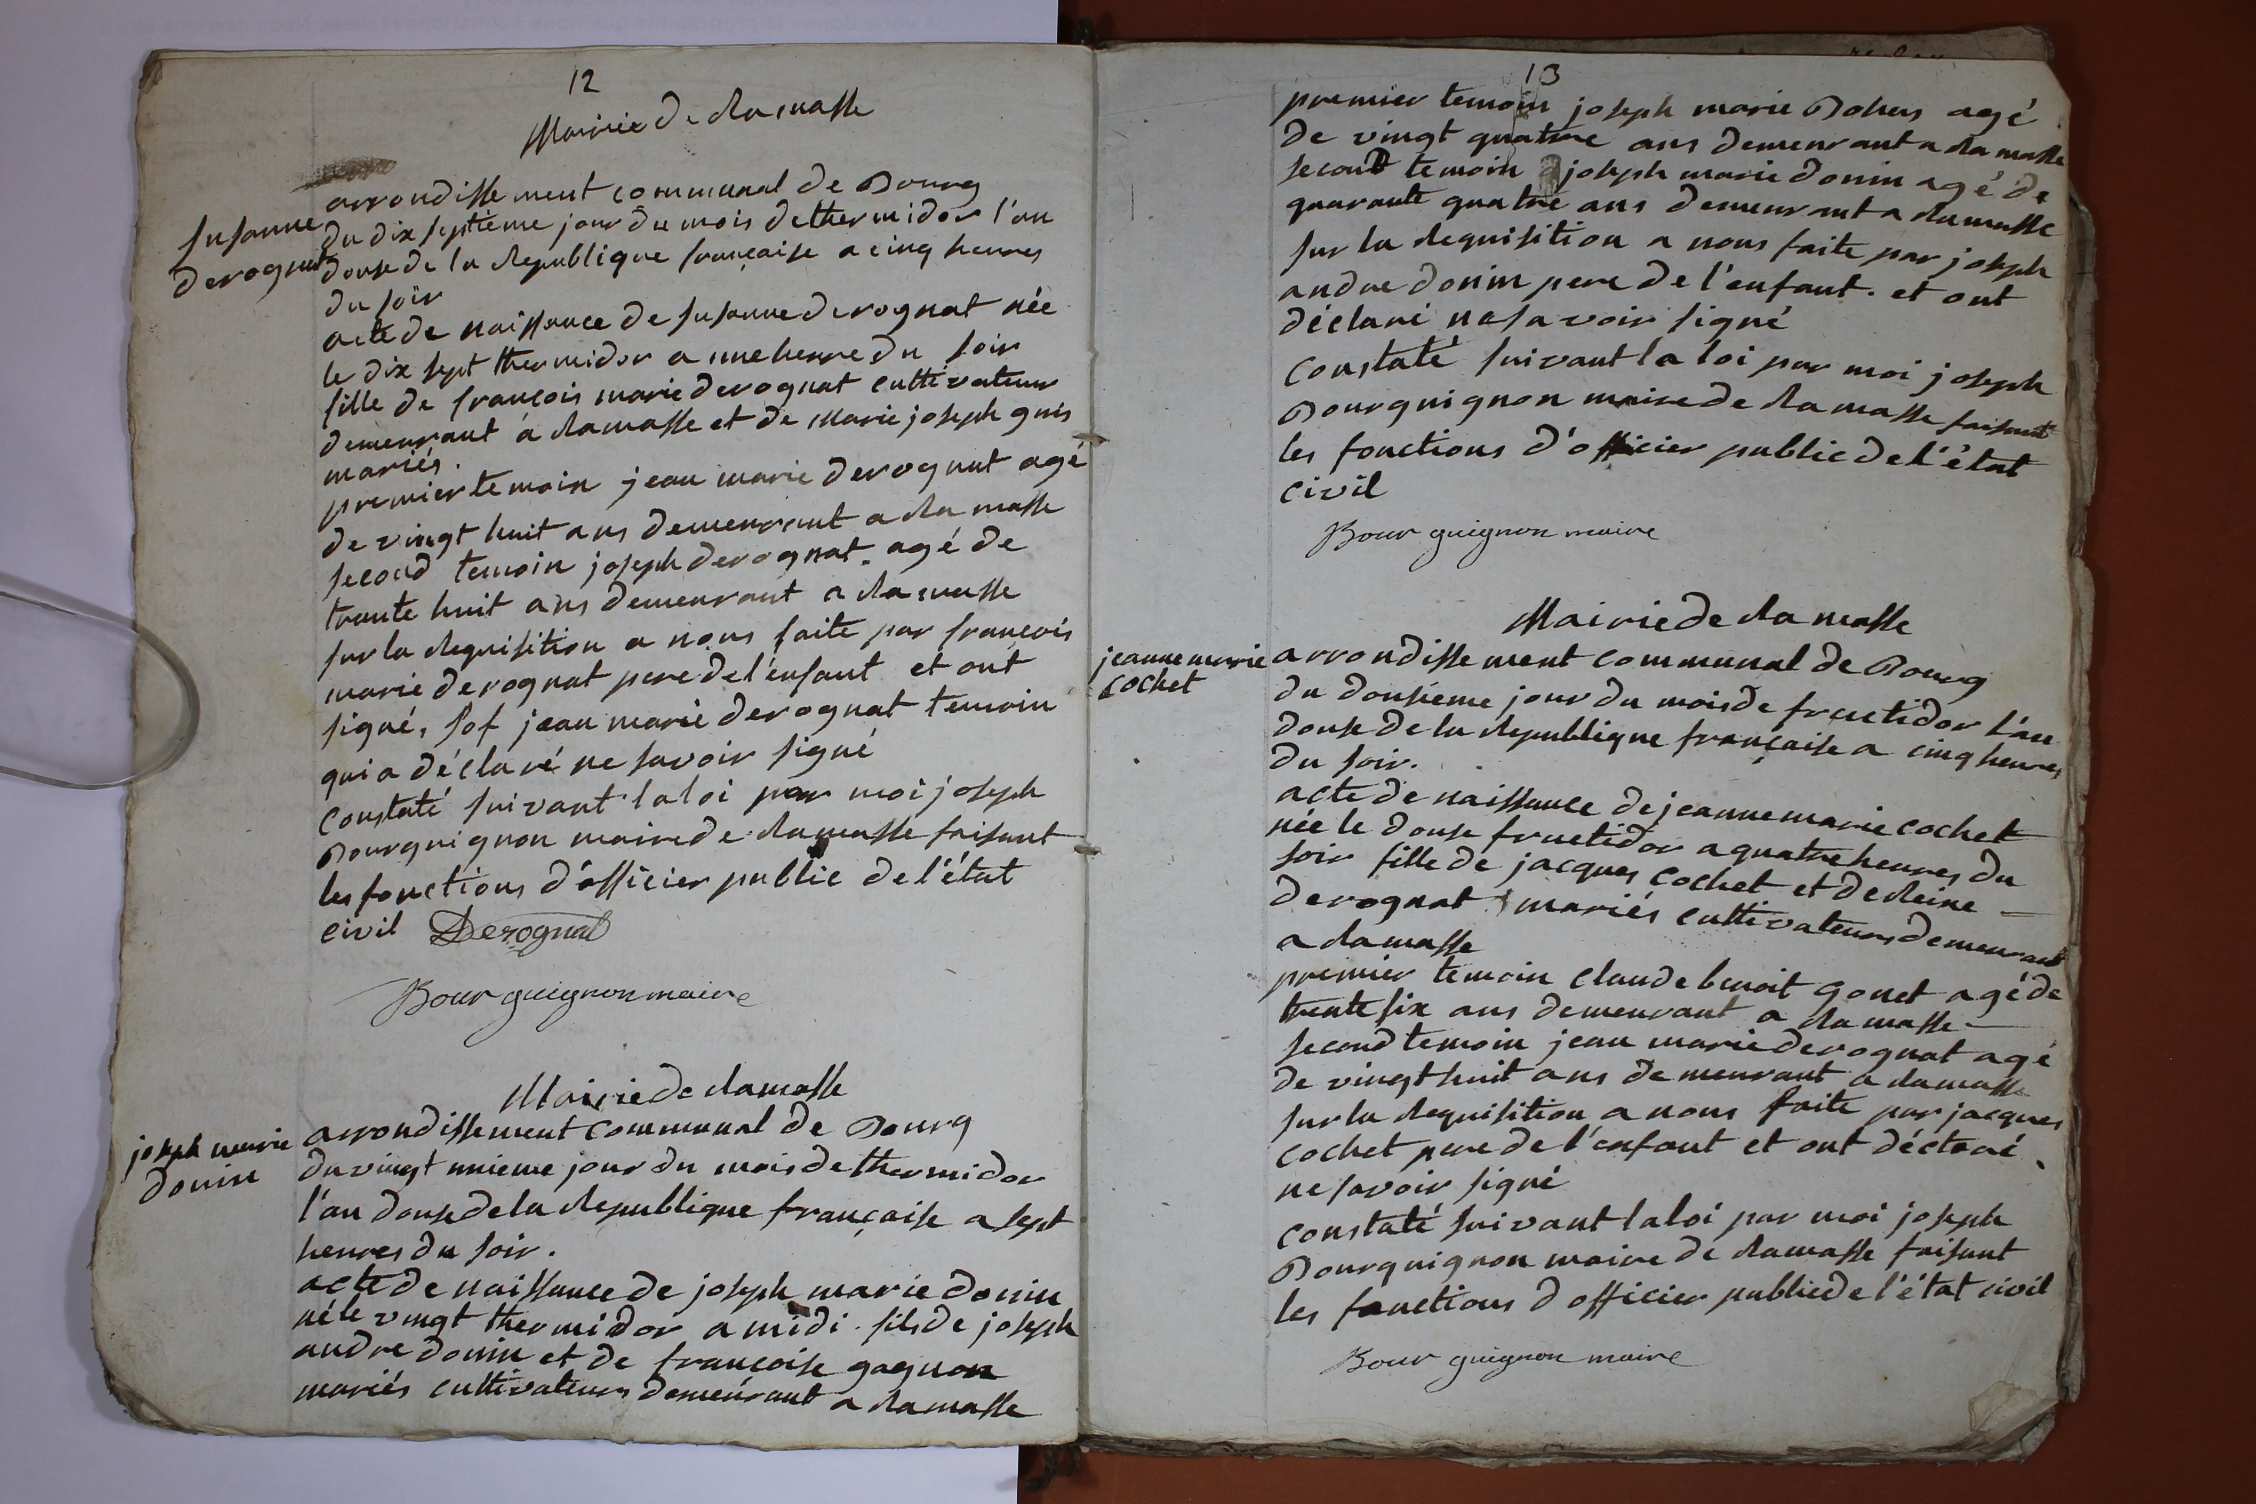 12
Mairie de Ramasse
arrondissement communal de Bourg
Susanne
derognat
du dix septieme jour du mois de thermidor l'an
douse de la Republique française a cinq heures
du soir
acte de naissance de susanne derognat née
le dix sept thermidor a une heure du soir
fille de françois marie derognat cultivateur
demeurant a Ramasse et de marie joseph guis
mariés.
premier temoin jean marie derognat agé
de vingt huit ans demeurant a Ramasse
second temoin joseph derognat agé de
trante huit ans demeurant a Ramasse
sur la Requisition a nous faite par françois
marie derognat pere de l'enfant et ont
signé, sof jean marie derognat temoin
qui a déclaré ne savoir signé
constaté suivant la loi par moi joseph
Bourguignon maire de Ramasse faisant
les fonctions d'officier public de l'état
civil Derognat
Bourguignon maire
Mairie de Ramasse
joseph marie
donin
arrondissement communal de Bourg
du vingt unieme jour du mois de thermidor
l'an douse de la Republique française a sept
heures du soir.
acte de naissance de joseph marie donin
né le vingt thermidor a midi. fils de joseph
andre donin et de françoise gagnon
mariés cultivateurs demeurant a Ramasse
13
premier temoin joseph marie agé
de vingt quatre ans demeurant a Ramasse
second temoin joseph marie donin agé de
quarante quatre ans demeurant a Ramasse
sur la Requisition a nous faite par joseph
andre donin pere de l'enfant. et ont
déclaré ne savoir signé
constaté suivant la loi par moi joseph
Bourguignon maire de Ramasse faisant
les fonctions d'officier public de l'état
civil
Bourguignon maire
Mairie de Ramasse
jeanne marie
cochet
arrondissement communal de Bourg
du dousieme jour du mois de fructidor l'an
douse de la Republique française a cinq heures
du soir.
acte de naissance de jeanne marie cochet
née le douse fructidor a quatre heures du
soir fille de jacques cochet et de Reine
derognat mariés cultivateurs demeurant
a Ramasse
premier temoin claude benoit gonet agé de
trente six ans demeurant a Ramasse
second temoin jean marie derognat agé
de vingt huit ans demeurant a Ramasse
sur la Requisition a nous faite par jacques
cochet pere de l'enfant et ont déclaré
ne savoir signé
constaté suivant la loi par moi joseph
Bourguignon maire de Ramasse faisant
les fonctions d officier public de l'état civil
Bourguignon maire